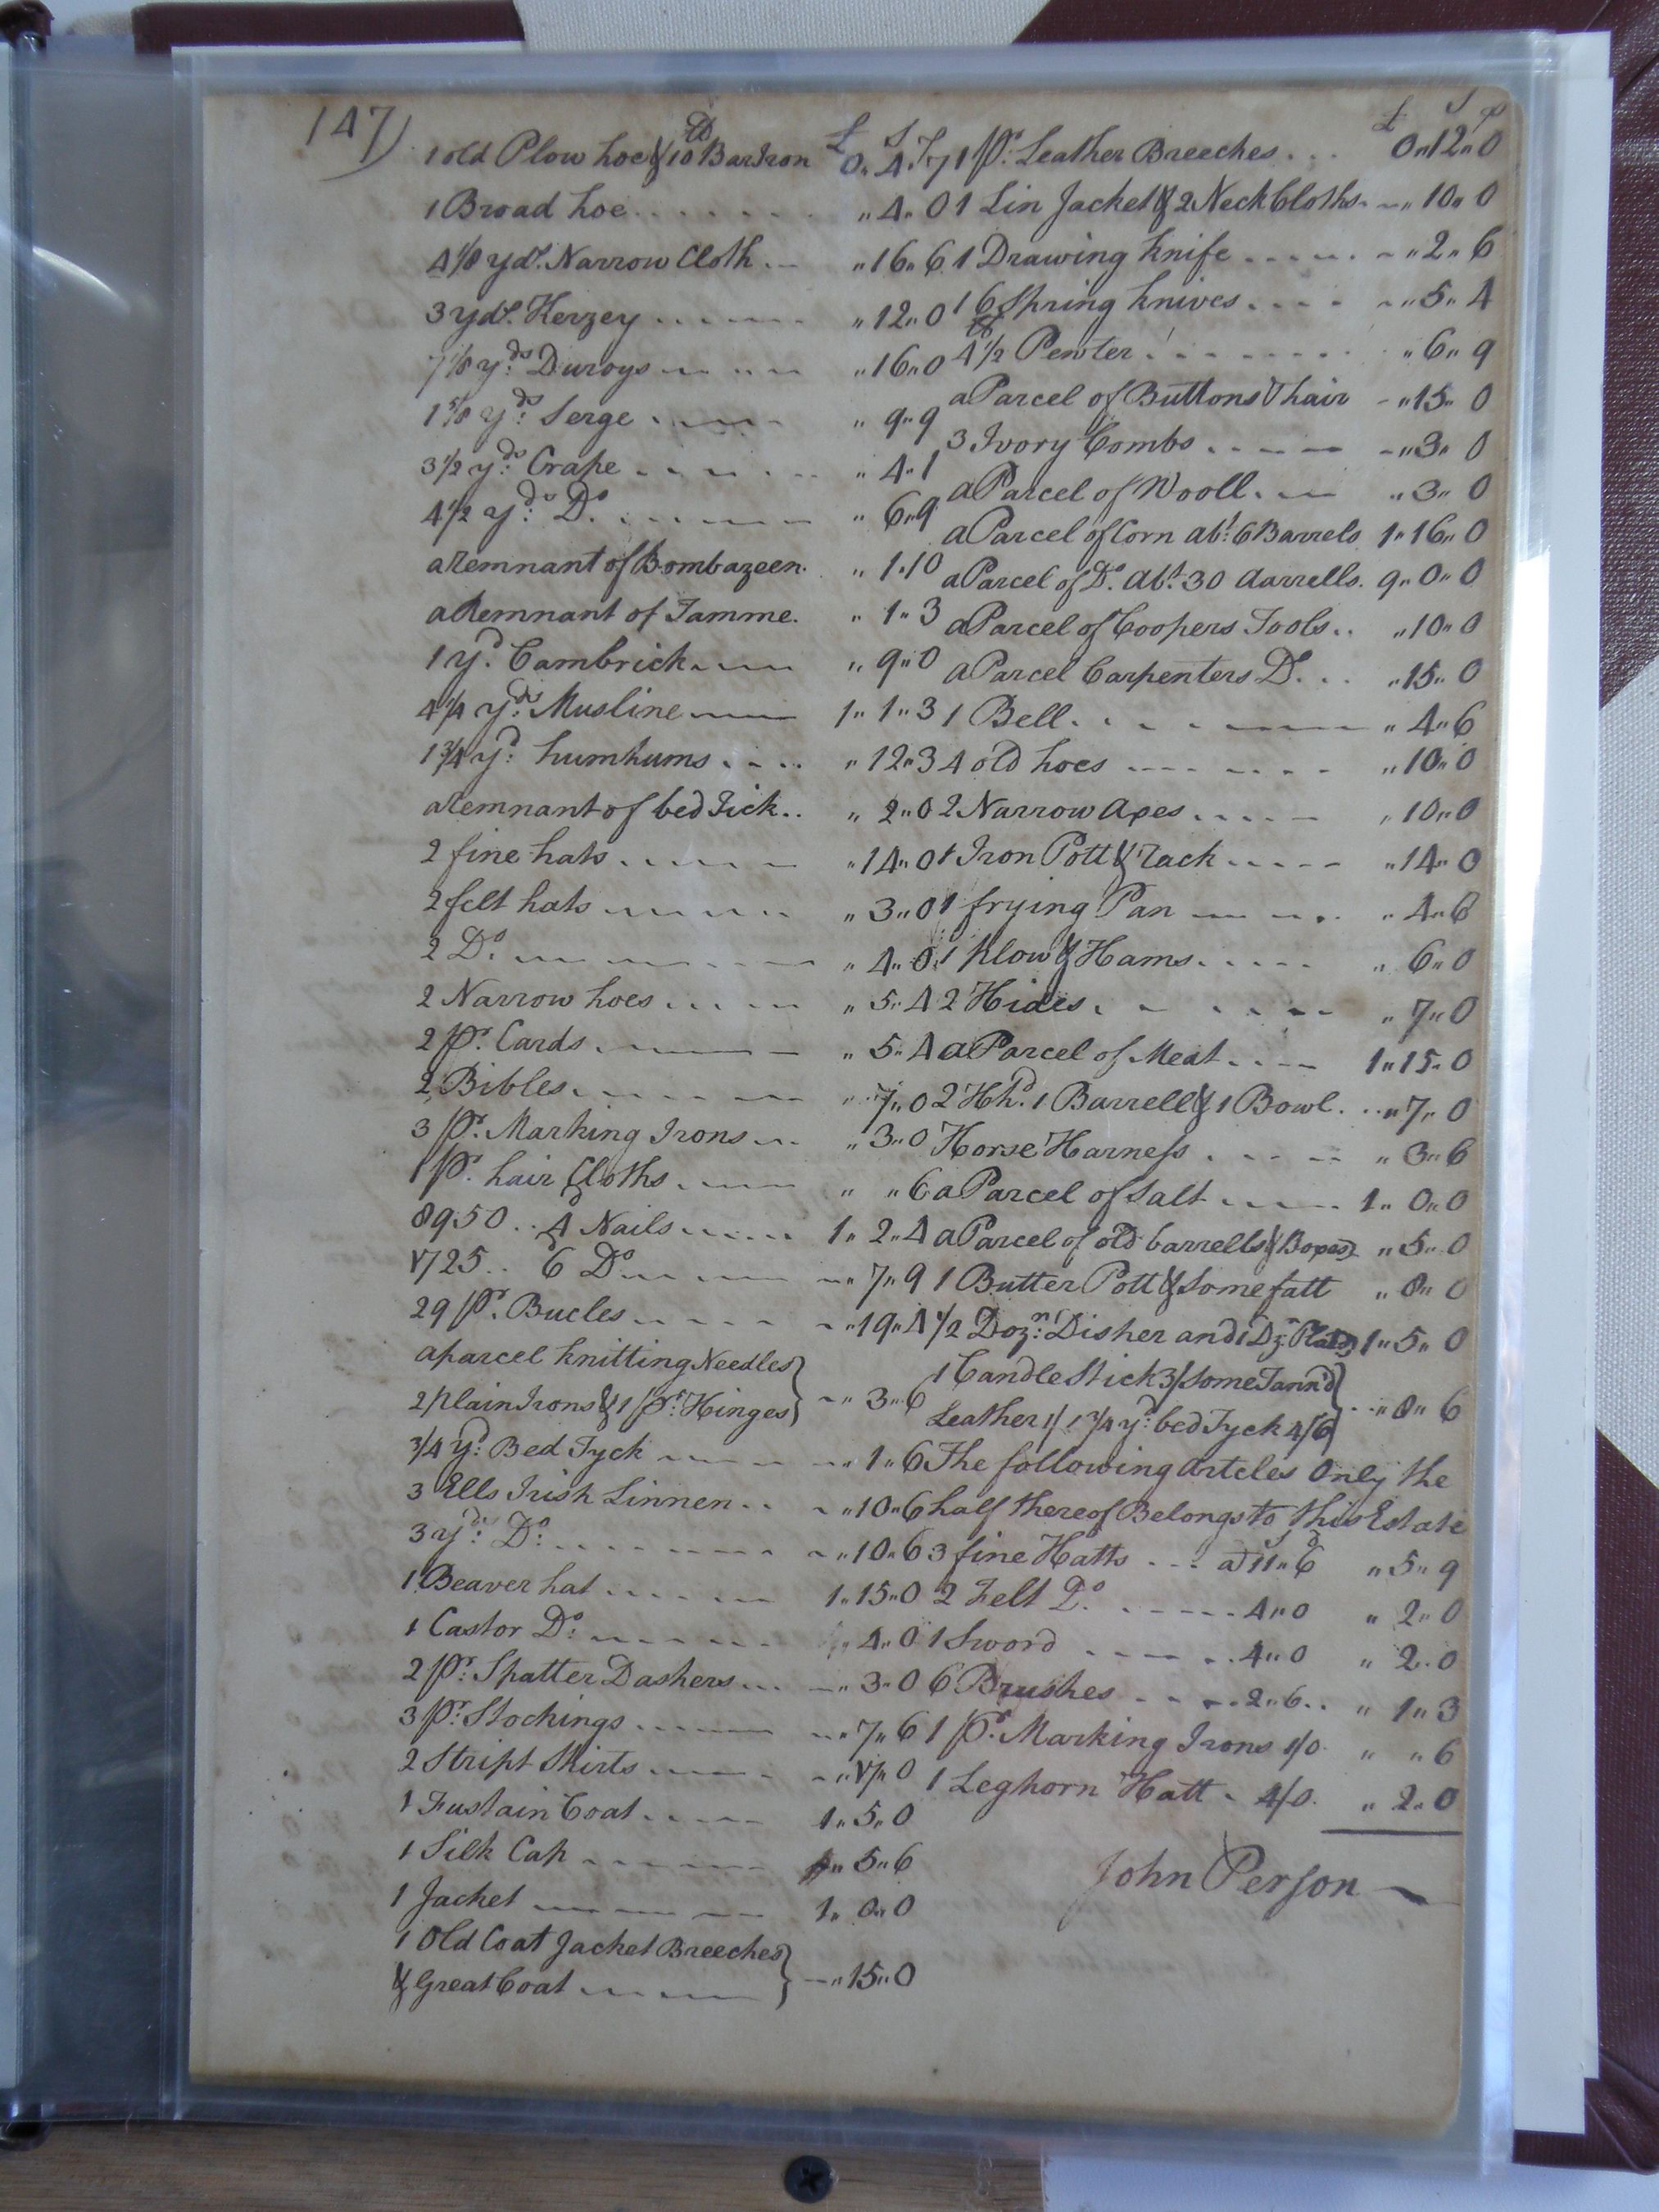 147)
£ S
1 old Plow hoe & 10 lb Bar Iron 0" 4" 7
1 Broad hoe "4" 0
4 1/8 yds. Narrow Cloth "16" 6
3 yds. Kerzey "12" 0
7 1/8 yds. Duroys "16" 0
1 5/8 yds. Serge "9" 9
3 1/2 yds. Crape "4" 1
4 1/2 yds. Do. "6" 9
a Remnant of Bombazeen "1" 10
a Remnant of Tamme. "1" 3
1 yd. Cambrick "9" 0
4 1/4 yds. Musline 1" 1" 3
1 3/4 yd. humhums "12" 3
a Remnant of bed Tick "2" 0
2 fine hats "14" 0
2 felt hats "3" 0
2 Do. "4" 0
2 Narrow hoes "5" 4
2 pr. Cards "5" 4
2 Bibles "7" 0
3 pr. Marking Irons "3" 0
1 pr. hair Cloths " " 6
8950 .. 4d Nails 1" 2" 4
1725 .. 6d Do. "7" 9
29 pr. Bucles "19" 4
a parcel knitting Needles }
2 plain Irons & 1 pr. Hinges } "3" 6
3/4 yd. Bed Tyck "1" 6
3 Ells Irish Linnen "10" 6
3 yds. Do. "10" 6
1 Beaver hat 1" 15" 0
1 Castor Do. "4" 0
2 pr. Spatter Dashers "3" 0
3 pr. Stockings "7" 6
2 Stript Shirts "17" 0
1 Fustain Coat 1" 5" 0
1 Silk Cap "5" 6
1 Jacket 1" 0" 0
1 Old Coat Jacket Breeches }
& Great Coat } "15" 0
£ S p
1 pr. Leather Breeches 0" 12" 0
1 Lin Jacket & 2 Neck Cloths "10" 0
1 Drawing knife "2" 6
16 Spring knives "5" 4
4 1/2 lb Pewter "6" 9
a Parcel of Buttons & hair "15" 0
3 Ivory Combs "3" 0
a Parcel of Wooll "3" 0
a Parcel of Corn abt. 6 Barrels 1" 16" 0
a Parcel of Do. abt. 30 aarrells. 9" 0" 0
a Parcel of Coopers Tools "10" 0
a Parcel Carpenters Do. "15" 0
1 Bell "4" 6
4 old hoes "10" 0
2 Narrow axes "10" 0
1 Iron Pott & rack "14" 0
1 frying Pan "4" 6
1 plow & Hams "6" 0
2 Hides "7" 0
a Parcel of Meat 1" 15" 0
2 Hhd. 1 Barrell & 1 Bowl "7" 0
Horse Harness "3" 6
a Parcel of Salt 1" 0" 0
a Parcel of old barrells & Boxes "5" 0
1 Butter Pott & some fatt "8" 0
1/2 Dozn. Disher and 1 Dz. Plates 1" 5" 0
1 Candle Stick 3/ some Tann'd }
Leather 1/ 1 3/4 yd. bed Tyck 4/6 } "8" 6
The following arteles Only the
half thereof Belongs to this Estate
3 fine Hatts a 11" 6 "5" 9
2 Felt Do. 4" 0 "2" 0
1 Sword 4" 0 "2" 0
6 Brushes 2" 6 "1" 3
1 pr. Marking Irons 1/0 " " 6
1 Leghorn Hatt 4/0 "2" 0
John Person